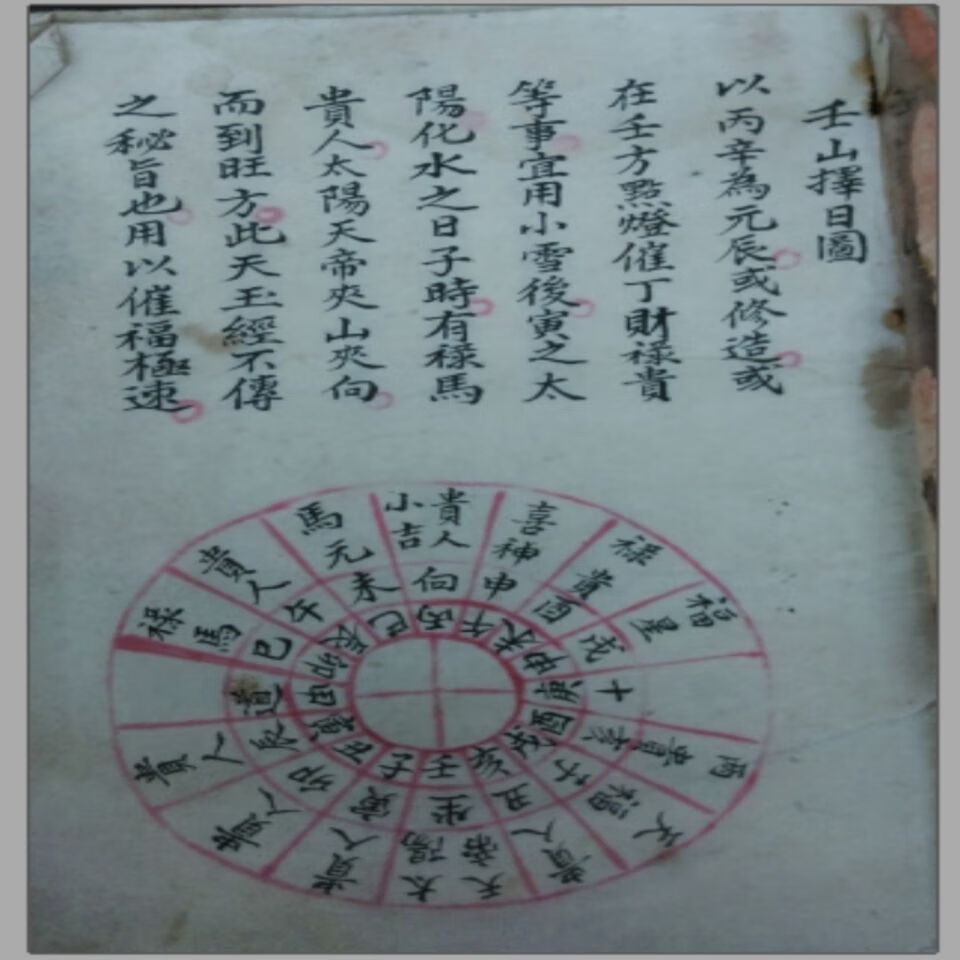 壬山擇日圖
以丙辛為元辰或修造或
在壬方點燈催丁財祿貴
等事宜用小雪後寅之太
陽化水之日子時有祿馬
貴人太陽天帝夾山夾向
而到旺方此天玉經不傳
之秘旨也用以催福極速
貴人
小吉
喜神
祿貴
福星
丙貴
貴人
天帝
太陽
貴人
貴人
貴人
祿馬
貴人
馬元
向
申
酉
戌
亥
子
丑
坐
寅
卯
辰
道
巳
午
未
丙
午
未
坤
庚
酉
戌
亥
壬
子
艮
寅
甲
卯
辰
巳